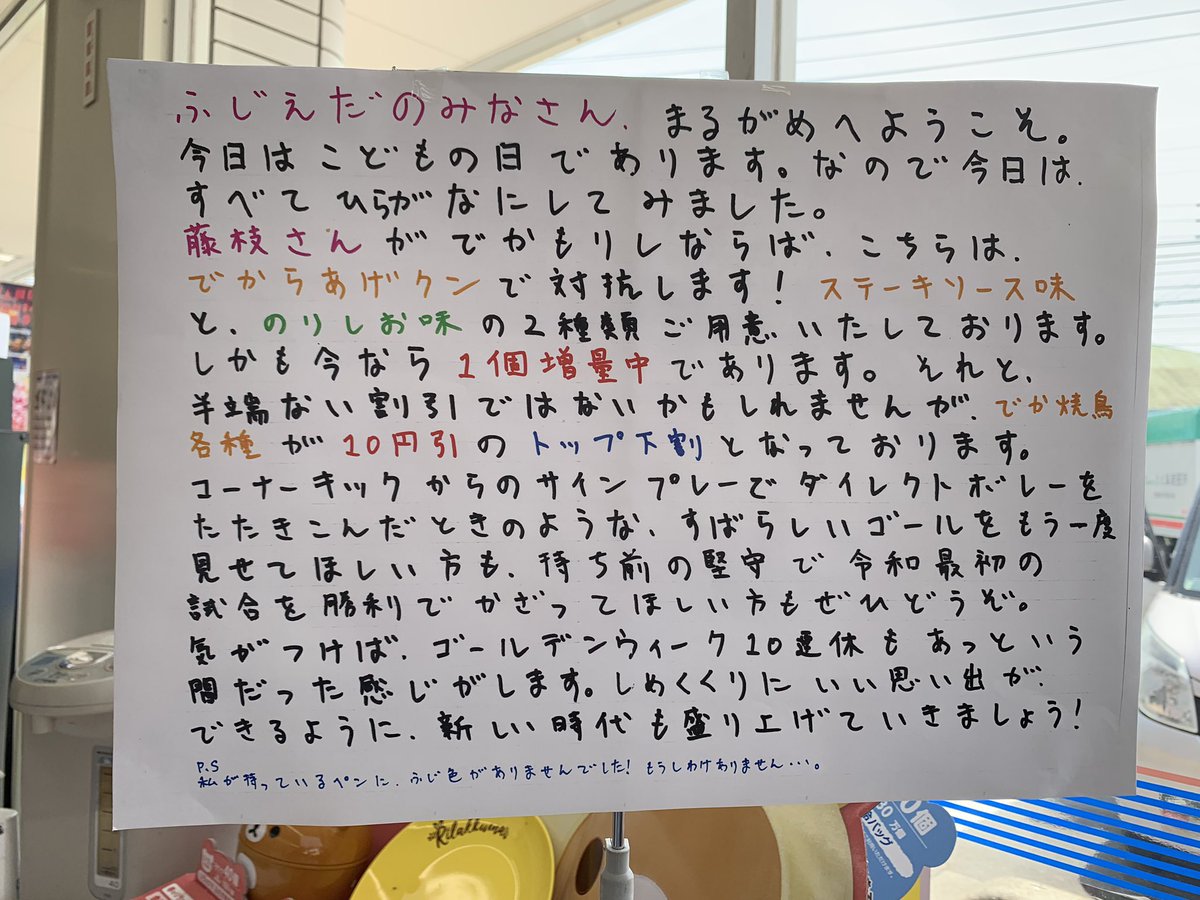 ふじえだのみなさん、まるがめへようこそ。
今日はこどもの日であります。なので今日は、
すべてひらがなにしてみました。
藤枝さんがでかもりしならば、こちらは、
でからあげクンで対抗します！ステーキソース味
と、のりしお味の2種類ご用意いたしております。
しかも今なら1個増量中であります。それと、
半端ない割引ではないかもしれませんが、でか焼鳥
各種が10円引のトップ下割となっております。
コーナーキックからのサインプレーでダイレクトボレーを
たたきこんだときのような、すばらしいゴールをもう一度
見せてほしい方も、持ち前の堅守で令和最初の
試合を勝利でかざってほしい方もぜひどうぞ。
気がつけば、ゴールデンウィーク10連休もあっという
間だった感じがします。しめくくりにいい思い出が、
できるように、新しい時代も盛り上げていきましょう！
P.S
私が持っているペンに、ふじ色がありませんでした！もうしわけありません…。
Rilakkuma